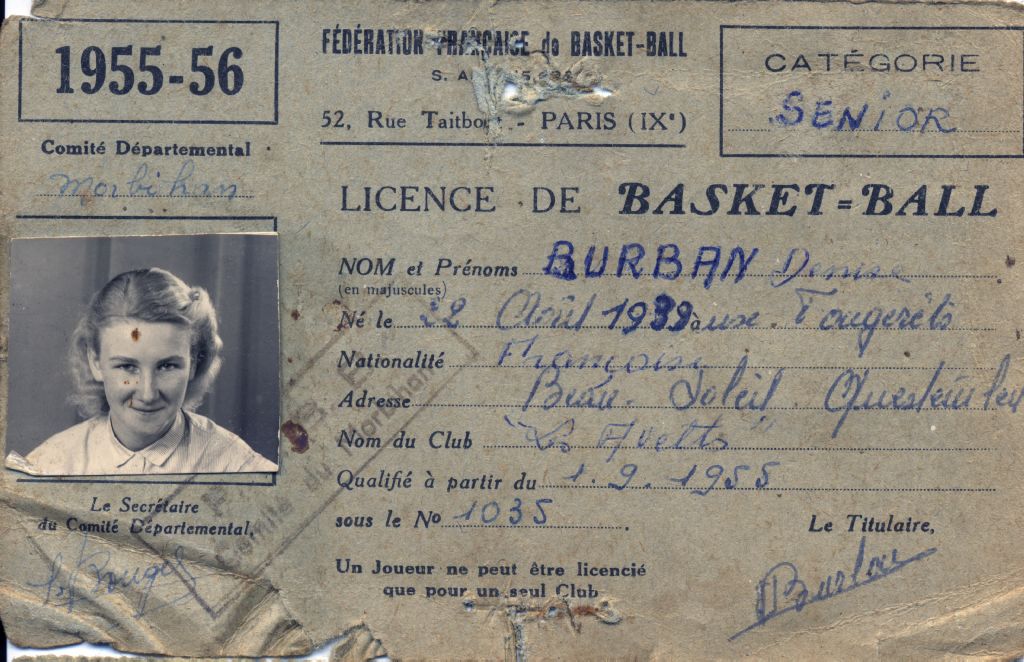 1955-56
Comité Départemental
Morbihan
FÉDÉRATION FRANÇAISE de BASKET-BALL
52, Rue Taitbout - PARIS (IXᵉ)
CATÉGORIE
SENIOR
LICENCE DE BASKET-BALL
NOM et Prénoms BURBAN Denise
(en majuscules)
Né le 22 Août 1939 à aux Fougerêts
Nationalité Française
Adresse Beau Soleil Questembert
Nom du Club "Les Avettes"
Qualifié à partir du 1.9.1955
sous le No 1035.
Un Joueur ne peut être licencié
que pour un seul Club
Le Secrétaire
du Comité Départemental,
Le Titulaire,
Burban
Comité du Morbihan